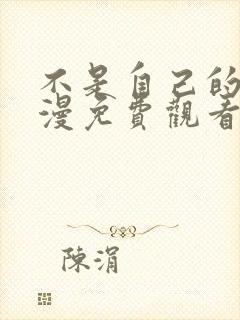 不是自己的
漫免費觀看
陳涓